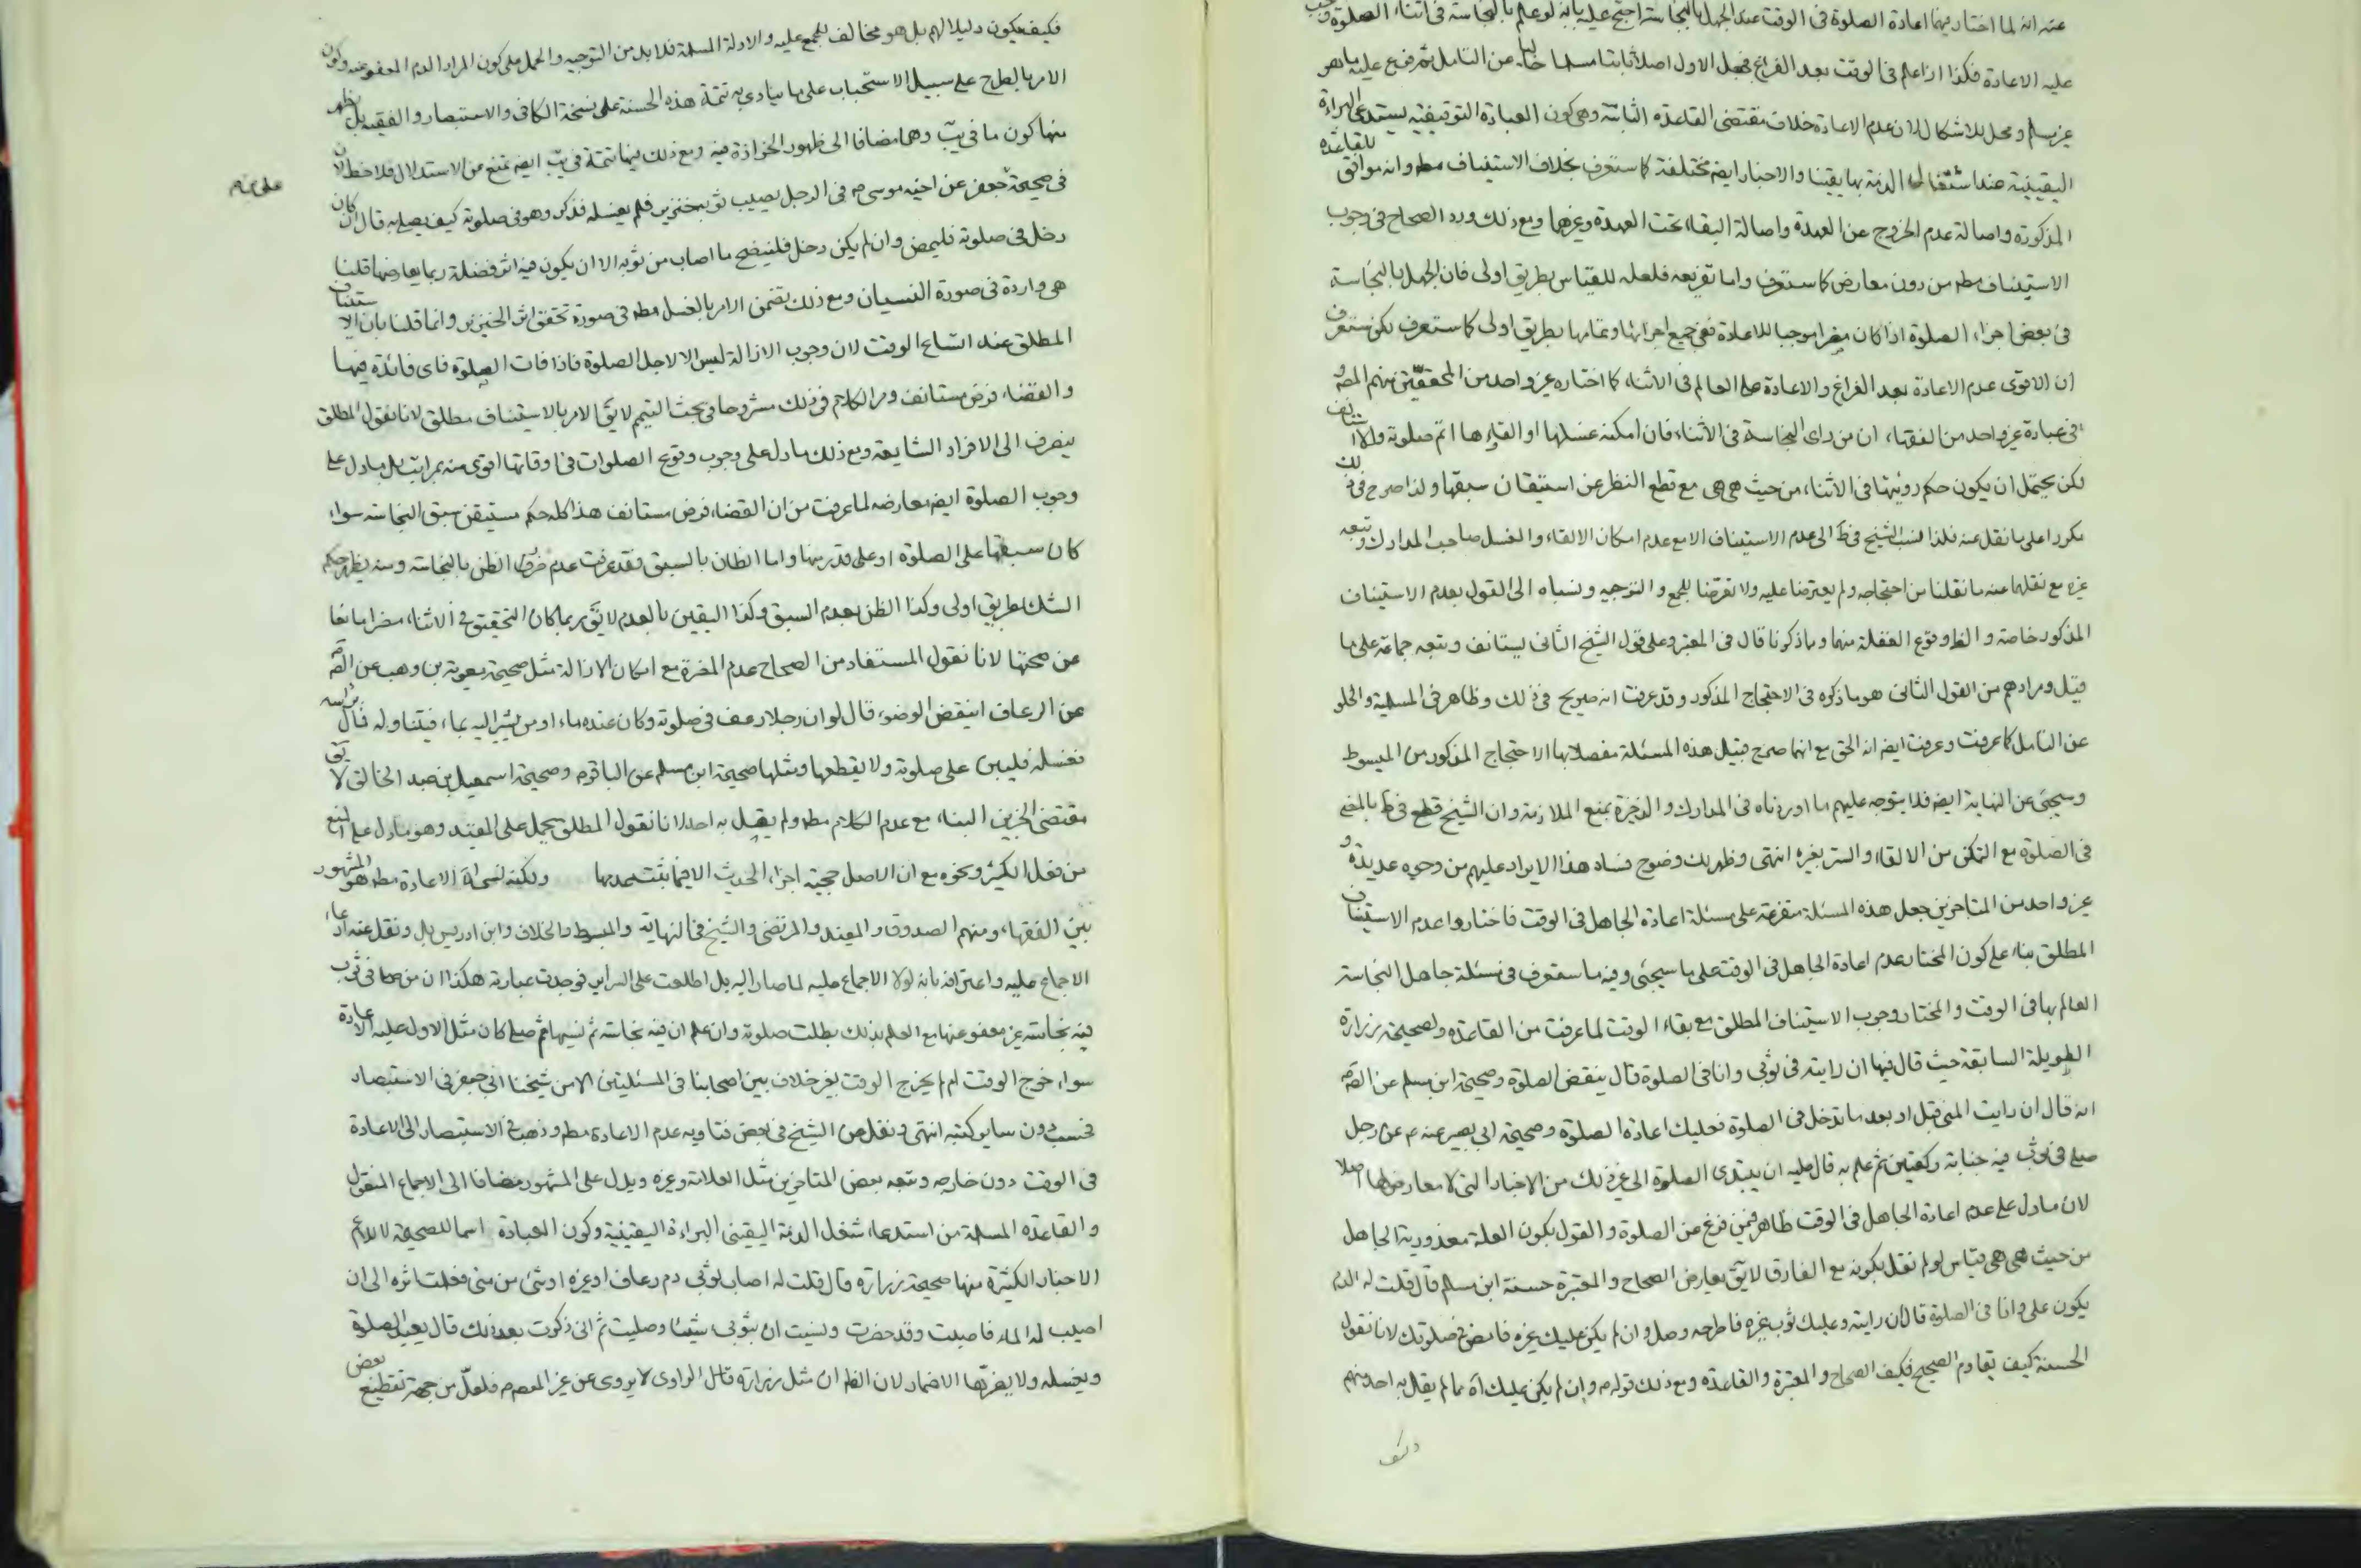 عنه انه لما اختار فيها اعادة الصلوة فى الوقت عند الجهل بالنجاسة احتج عليه بانه لو علم بالنجاسة فى اثناء الصلوة وجب
عليه الاعادة فكذا اذا علم فى الوقت بعد الفراغ فجعل الاول اصلا ثابتا مسلما خاليا عن التامل ثم فرع عليه ما هو
غير مسلم ومحل للاشكال لان عدم الاعادة خلاف مقتضى القاعدة الثابتة وهى كون العبادة التوقيفية يستدعى البراءة
اليقينية عند اشتغال الذمة بها يقينا والاخبار ايضا مختلفة كما ستعرف بخلاف الاستيناف مطه وانه موافق للقاعدة
المذكورة واصالة عدم الخروج عن العهدة واصالة البقاء تحت العهدة وغيرهما ومع ذلك ورد الصحاح فى وجوب
الاستيناف مطه من دون معارض كما ستعرف واما تفريعه فلعله للقياس بطريق اولى فان الجهل بالنجاسة
فى بعض اجزاء الصلوة اذا كان مضرا موجبا للاعادة ففى جميع اجزائها وتمامها بطريق اولى كما ستعرف لكن ستعرف
ان الاقوى عدم الاعادة بعد الفراغ والاعادة على العالم فى الاثناء كما اختاره غير واحد من المحققين منهم المصه و
فى عبارة غير واحد من الفقهاء ان من راى النجاسة فى الاثناء فان امكنه غسلها او القاءها اتم صلوته والا استانف
لكن يحتمل ان يكون حكم رويتها فى الاثناء من حيث هى هى مع قطع النظر عن استيقان سبقها ولذا صرح فى ذلك
مكررا على ما نقل عنه فلذا نسب الشيخ فى ط الى عدم الاستيناف الا مع عدم امكان الالقاء والغسل صاحب المدارك وتبعه
غيره مع نقلهما عنه ما نقلنا من احتجاجه ولم يعترضا عليه ولا تعرضا للجمع والتوجيه ونسباه الى القول بعدم الاستيناف
المذكور خاصة والظ وقوع الغفلة منهما وما ذكرنا قال فى المعتبر وعلى قول الشيخ الثانى يستانف وتبعه جماعة على ما
قيل ومرادهم من القول الثانى هو ما ذكره فى الاحتجاج المذكور وقد عرفت انه صريح فى ذلك وظاهر فى المسلمية والخلو
عن التامل كما عرفت وعرفت ايضا انه الحق مع انهما صرح قبيل هذه المسئلة مفصلا بهذا الاحتجاج المذكور من المبسوط
وسيجئ عن النهاية ايضا فلا يتوجه عليهم ما اورداه فى المدارك والذخيرة بمنع الملازمة وان الشيخ قطع فى ط بالمضى
فى الصلوة مع التمكن من الالقاء والستر بغيره انتهى وظهر لك وضوح فساد هذا الايراد عليهم من وجوه عديدة و
غير واحد من المتاخرين جعل هذه المسئلة متفرعة على مسئلة اعادة الجاهل فى الوقت فاختاروا عدم الاستيناف
المطلق بناء على كون المختار عدم اعادة الجاهل فى الوقت على ما سيجئ وفيه ما ستعرف فى مسئلة جاهل النجاسة
العالم بها فى الوقت والمختار وجوب الاستيناف المطلق مع بقاء الوقت لما عرفت من القاعدة ولصحيحة زرارة
الطويلة السابقة حيث قال فيها ان رايته فى ثوبى وانا فى الصلوة قال ينقض الصلوة وصحيحة ابن مسلم عن الصم
انه قال ان رايت المنى قبل او بعد ما تدخل فى الصلوة فعليك اعادة الصلوة وصحيحة ابى بصير عنه م عن رجل
صلى فى ثوب فيه جنابة ركعتين ثم علم به قال عليه ان يبتدى الصلوة الى غير ذلك من الاخبار التى لا معارض لها اصلا
لان ما دل على عدم اعادة الجاهل فى الوقت ظاهر فيمن فرغ عن الصلوة والقول بكون العلة معذورية الجاهل
من حيث هى هى قياس لو لم نقل بكونه مع الفارق لا يق يعارض الصحاح والمعتبرة حسنة ابن مسلم قال قلت له الدم
يكون على وانا فى الصلوة قال ان رايته وعليك ثوب غيره فاطرحه وصل وان لم يكن عليك غيره فامض فى صلوتك لانا نقول
الحسنة كيف يقاوم الصحيح فكيف الصحاح والمعتبرة والقاعدة ومع ذلك قوله م وان لم يكن عليك اه مما لم يقل به احد منهم
فكيف يكون دليلا لهم بل هو مخالف للمجمع عليه والادلة المسلمة فلا بد من التوجيه والحمل على كون المراد الدم المعفو عنه وكون
الامر بالطرح على سبيل الاستحباب على ما ينادى به تتمة هذه الحسنة على نسخة الكافى والاستبصار والفقيه بل يظهر
منها كون ما فى يب وهما مضافا الى ظهور الحزازة فيه ومع ذلك فيها تتمة فى يب ايضا تمنع من الاستدلال فلاحظ لان
فى صحيحة على بن جعفر عن اخيه موسى م فى الرجل يصيب ثوبه خنزير فلم يغسله فذكر وهو فى صلوته كيف يصلى به قال ان كان
دخل فى صلوته فليمض وان لم يكن دخل فلينضح ما اصاب من ثوبه الا ان يكون فيه اثر فغسله ربما يعارضها قلنا
هى واردة فى صورة النسيان ومع ذلك تضمن الامر بالغسل مطه فى صورة تحقق اثر الخنزير وانما قلنا بان الاستيناف
المطلق عند اتساع الوقت لان وجوب الازالة ليس الا لاجل الصلوة فاذا فات الصلوة فاى فائدة فيها
والقضاء فرض مستانف ومر الكلام فى ذلك مشروحا فى بحث التيمم لا يق الامر بالاستيناف مطلق لانا نقول المطلق
ينصرف الى الافراد الشايعة ومع ذلك ما دل على وجوب وقوع الصلوات فى اوقاتها اقوى منه بمراتب بل ما دل على
وجوب الصلوة ايضا معارضه لما عرفت من ان القضاء فرض مستانف هذا كله حكم مستيقن سبق النجاسة سواء
كان سبقها على الصلوة او على قدر منها واما الظان بالسبق فقد عرفت عدم ضرر الظن بالنجاسة ومنه يظهر حكم
الشك بطريق اولى وكذا الظن بعدم السبق وكذا اليقين بالعدم لا يق ربما كان التحقق فى الاثناء مضرا مانعا
عن صحتها لانا نقول المستفاد من الصحاح عدم المضرة مع امكان الازالة مثل صحيحة معوية بن وهب عن الصم
عن الرعاف اينقض الوضوء قال لو ان رجلا رعف فى صلوته وكان عنده ماء او من يشير اليه بماء فيتناوله فمال براسه
فغسله فليبن على صلوته ولا يقطعها ومثلها صحيحة ابن مسلم عن الباقر م وصحيحة اسمعيل بن عبد الخالق لا يق
مقتضى الخبرين البناء مع عدم الكلام مطه ولم يقل به احد لانا نقول المطلق يحمل على المقيد وهو ما دل على المنع
من فعل الكثير ونحوه مع ان الاصل حجية اجزاء الحديث الا فيما يثبت عدمها ولكنه لنسيانه الاعادة مطه هو المشهور
بين الفقهاء ومنهم الصدوق والمفيد والمرتضى والشيخ فى النهاية والمبسوط والخلاف وابن ادريس بل ونقل عنه ادعاء
الاجماع عليه واعترافه بانه لولا الاجماع عليه لما صار اليه بل اطلعت على السراير فوجدت عبارته هكذا ان من صلى فى ثوب
فيه نجاسة غير معفو عنها مع العلم بذلك بطلت صلوته وان علم ان فيه نجاسة ثم نسيها ثم صلى كان مثل الاول عليه الاعادة
سواء خرج الوقت ام لم يخرج الوقت بغير خلاف بين اصحابنا فى المسئلتين الا من شيخنا ابى جعفر فى الاستبصار
فحسب دون ساير كتبه انتهى ونقل عن الشيخ فى بعض فتاويه عدم الاعادة مطه وذهب فى الاستبصار الى الاعادة
فى الوقت دون خارجه وتبعه بعض المتاخرين مثل العلامة وغيره ويدل على المشهور مضافا الى الاجماع المنقول
والقاعدة المسلمة من استدعاء شغل الذمة اليقينى البراءة اليقينية وكون العبادة اسما للصحيحة لا للاعم
الاخبار الكثيرة منها صحيحة زرارة قال قلت له اصاب ثوبى دم رعاف او غيره او شئ من منى فعلمت اثره الى ان
اصيب له الماء فاصبت وقد حضرت ونسيت ان بثوبى شيئا وصليت ثم انى ذكرت بعد ذلك قال يعيد الصلوة
ويغسله ولا يضرها الاضمار لان الظ ان مثل زرارة قال الراوى لا يروى عن غير المعصوم فلعل من جهة تقطيع بعض